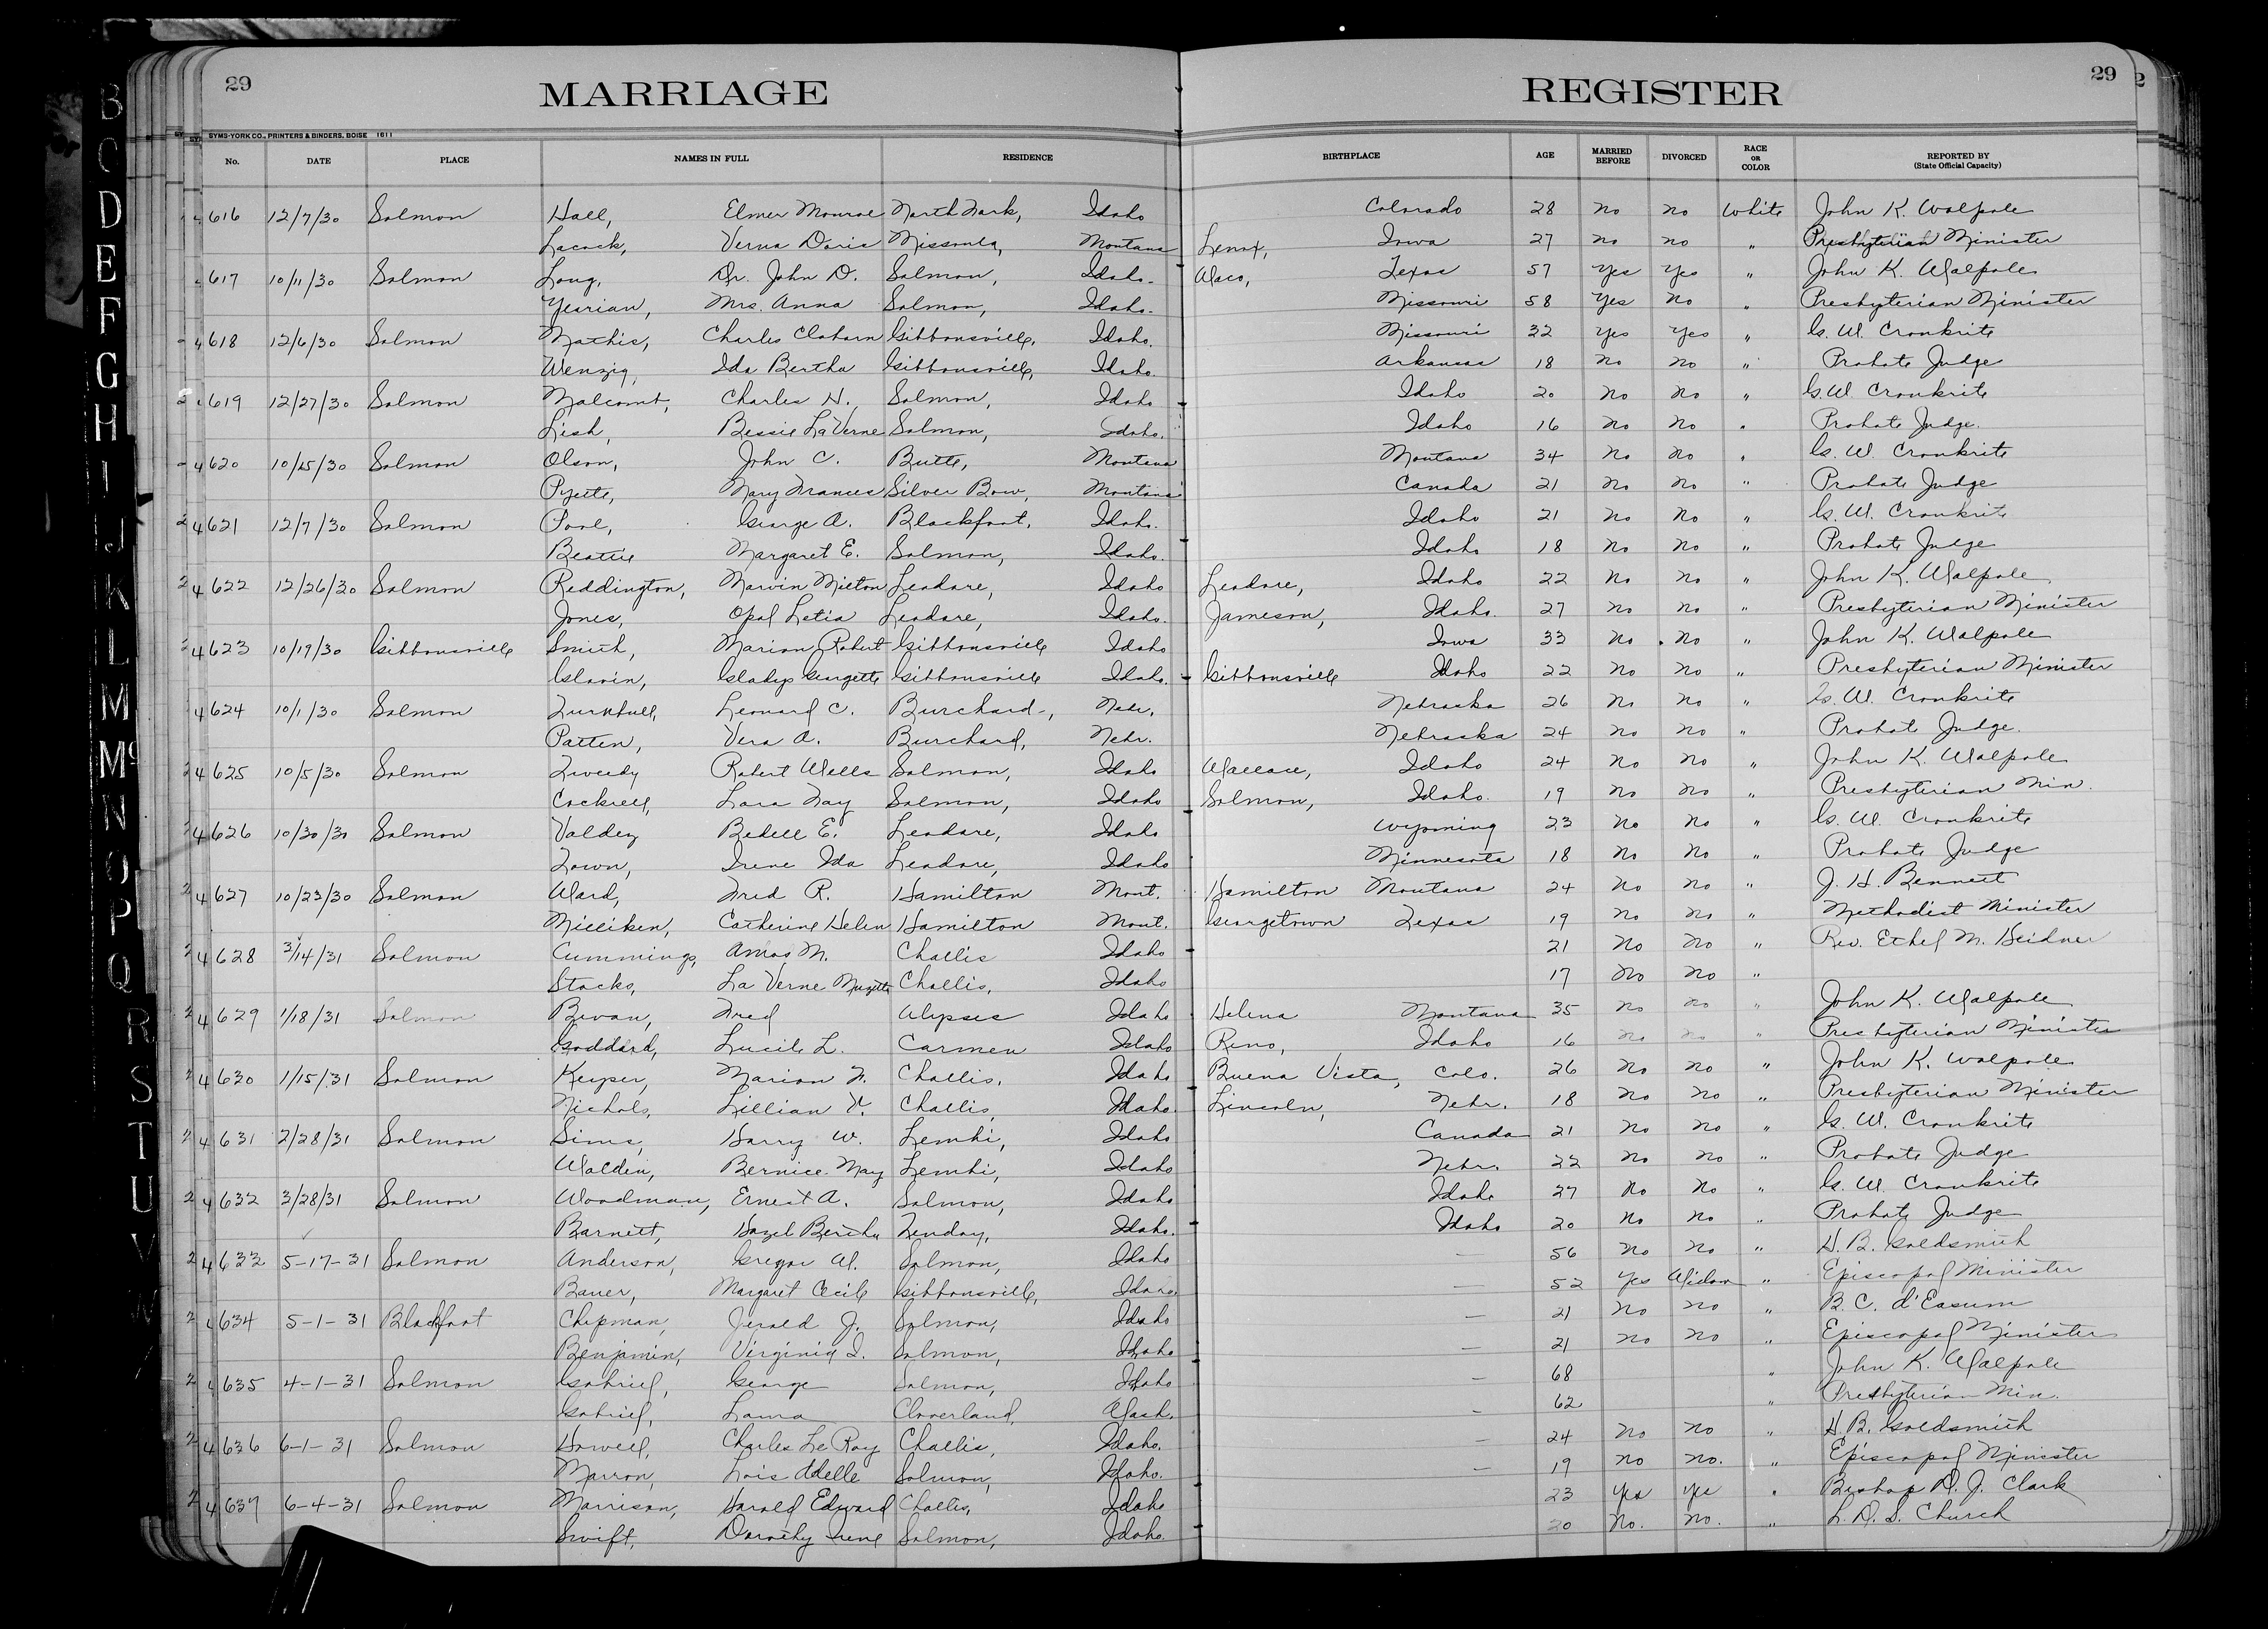 29 MARRIAGE REGISTER 29
SYMS-YORK CO., PRINTERS & BINDERS, BOISE 1611
No. DATE PLACE NAMES IN FULL RESIDENCE BIRTHPLACE AGE MARRIED BEFORE DIVORCED RACE OR COLOR REPORTED BY (State Official Capacity)
616 12/7/30 Salmon Hall, Elmer Monroe North Fork, Idaho Colorado 28 no no White John K. Walpole
Lacock, Verna Doris Missoula, Montana Lenox, Iowa 27 no no " Presbyterian Minister
617 10/11/30 Salmon Long, Dr. John D. Salmon, Idaho. Waco, Texas 57 Yes Yes " John K. Walpole
Yearian, Mrs. Anna Salmon, Idaho. Missouri 58 Yes No " Presbyterian Minister
4618 12/6/30 Salmon Mathis, Charles Claborn Gibbonsville, Idaho. Missouri 32 Yes Yes " G. W. Cronkrite
Wenzig, Ida Bertha Gibbonsville, Idaho. Arkansas 18 No no " Probate Judge
619 12/27/30 Salmon Malcomb, Charles H. Salmon, Idaho Idaho 20 No No " G. W. Cronkrite
Lish, Bessie LaVerne Salmon, Idaho. Idaho 16 No No " Probate Judge.
4620 10/25/30 Salmon Olson, John C. Butte, Montana Montana 34 No No " G. W. Cronkrite
Pyette, Mary Frances Silver Bow, Montana Canada 21 No No " Probate Judge
4621 12/7/30 Salmon Poole, George A. Blackfoot, Idaho. Idaho 21 No No " G. W. Cronkrite
Beattie Margaret E. Salmon, Idaho. Idaho 18 No No " Probate Judge
4622 12/26/30 Salmon Reddington, Marvin Milton Leadore, Idaho Leadore, Idaho 22 No No " John K. Walpole
Jones, Opal Letia Leadore, Idaho. Jameson, Idaho. 27 No No " Presbyterian Minister
4623 10/19/30 Gibbonsville Smith, Marion Robert Gibbonsville Idaho Iowa 33 No No " John K. Walpole
Slavin, Gladys Georgette Gibbonsville Idaho. Gibbonsville Idaho 22 No No " Presbyterian Minister
4624 10/1/30 Salmon Turnbull, Leonard C. Burchard, Nebr. Nebraska 26 No No " G. W. Cronkrite
Patten, Vera A. Burchard, Nebr. Nebraska 24 No No " Probate Judge.
4625 10/5/30 Salmon Tweedy Robert Wells Salmon, Idaho Wallace, Idaho 24 No No " John K. Walpole
Cockrell, Lara Fay Salmon, Idaho Salmon, Idaho. 19 No No " Presbyterian Min.
4626 10/30/30 Salmon Valdez Bedell E. Leadore, Idaho Wyoming 23 No No " G. W. Cronkrite
Town, Irene Ida Leadore, Idaho Minnesota 18 No No " Probate Judge
4627 10/23/30 Salmon Ward, Fred R. Hamilton Mont. Hamilton Montana 24 No No " J. H. Bennett
Milliken, Catherine Helen Hamilton Mont. Georgetown Texas 19 No No " Methodist Minister
4628 3/14/31 Salmon Cummings, Amos M. Challis Idaho 21 No No " Rev. Ethel M. Heidner
Stocks, La Verne Challis, Idaho 17 No No "
4629 1/18/31 Salmon Bevan, Fred Ulysses Idaho Helena Montana 35 no no " John K. Walpole
Goddard, Lucile L. Carmen Idaho Reno, Idaho 16 no no " Presbyterian Minister
4630 1/15/31 Salmon Keyser, Marion F. Challis, Idaho Buena Vista, Colo. 26 No No " John K. Walpole
Nichols, Lillian V. Challis, Idaho. Lincoln, Nebr. 18 No No " Presbyterian Minister
4631 2/28/31 Salmon Sims, Harry W. Lemhi, Idaho Canada 21 No No " G. W. Cronkrite
Walden, Bernice May Lemhi, Idaho Nebr. 22 No No " Probate Judge
4632 3/28/31 Salmon Woodman, Ernest A. Salmon, Idaho Idaho 27 No No " G. W. Cronkrite
Barnett, Hazel Bertha Tendoy, Idaho. Idaho 20 No No " Probate Judge
4633 5-17-31 Salmon Anderson, Gregor W. Salmon, Idaho — 56 No No " H. B. Goldsmith
Bauer, Margaret Cecile Gibbonsville, Idaho. — 52 Yes Widow " Episcopal Minister
4634 5-1-31 Blackfoot Chipman, Jerald J. Salmon, Idaho — 21 No No " B. C. d'Easum
Benjamin, Virginia I. Salmon, Idaho — 21 No No " Episcopal Minister
4635 4-1-31 Salmon Gabriel, George Salmon, Idaho — 68 " John K. Walpole
Gabriel, Laura Cloverland, Wash. — 62 " Presbyterian Min.
4636 6-1-31 Salmon Howell, Charles Le Roy Challis, Idaho. — 24 No No " H. B. Goldsmith
Marron, Lois Adelle Salmon, Idaho. — 19 No No. " Episcopal Minister
4637 6-4-31 Salmon Morrison, Harold Edward Challis, Idaho 23 Yes Yes " Bishop D. J. Clark
Swift, Dorothy Irene Salmon, Idaho. 20 No. No. " L. D. S. Church
B
C
D
E
F
G
H
I
J
K
L
M
Mc
N
O
P
Q
R
S
T
U
V
W